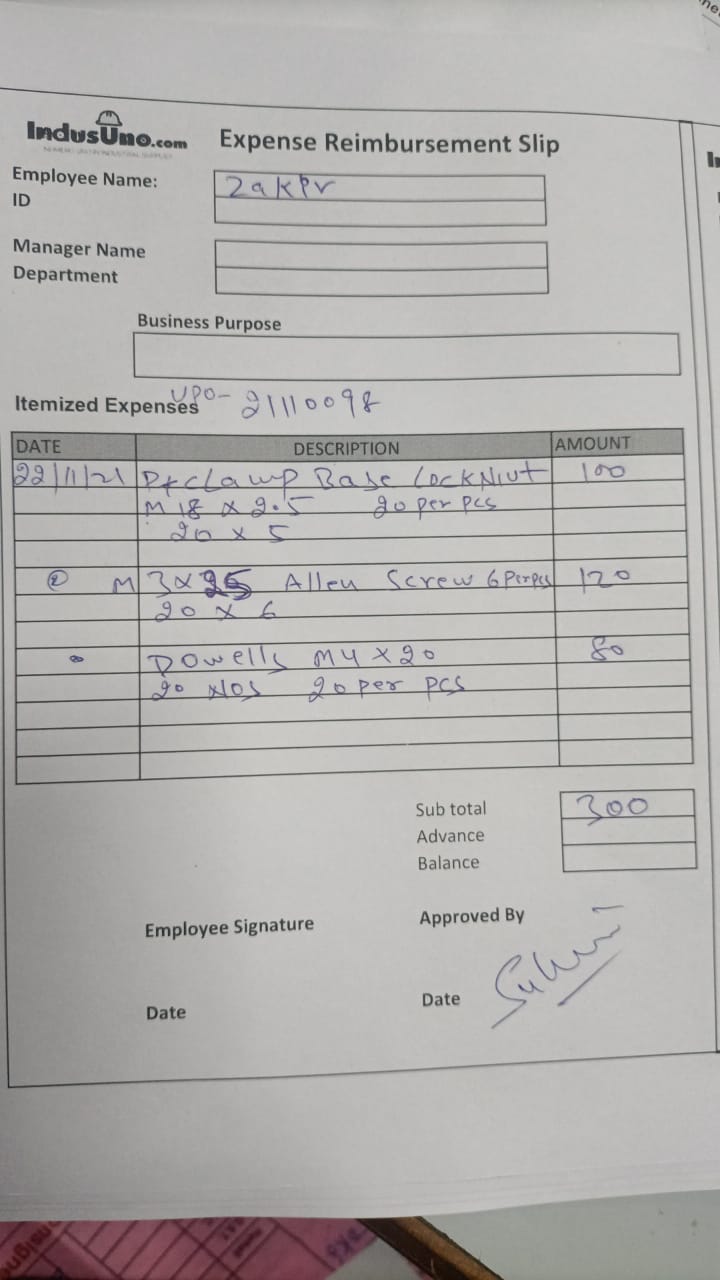 IndusUno.com
Expense Reimbursement Slip
Employee Name: Zakir
ID
Manager Name
Department
Business Purpose
Itemized Expenses UPO- 21110098
DATE DESCRIPTION AMOUNT
22/11/21 Clamp Base LockNut 100
M 18 x 2.5 20 per pcs
20 x 5
② M 3x25 Allen Screw 6 Per pcs 120
20 x 6
Dowells M4 x 20 80
20 NOS 20 per pcs
Sub total 300
Advance
Balance
Employee Signature
Approved By
Date
Date